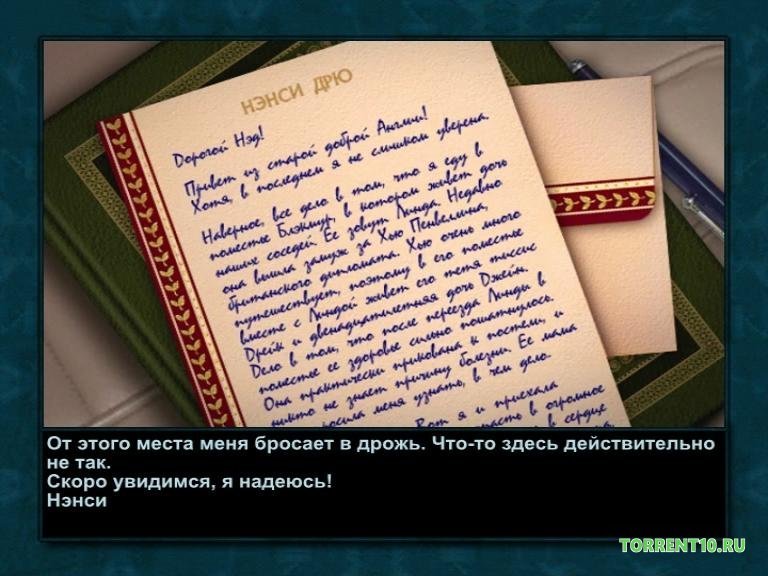 НЭНСИ ДРЮ
Дорогой Нэд!
Привет из старой доброй Англии!
Хотя, в последнем я не слишком уверена.
Наверное, все дело в том, что я еду в
поместье Блэкмур, в котором живет дочь
наших соседей. Ее зовут Линда. Недавно
она вышла замуж за Хью Пенвеллина,
британского дипломата. Хью очень много
путешествует, поэтому в его поместье
вместе с Линдой живет его тетя миссис
Дрейк и двенадцатилетняя дочь Джейн.
Дело в том, что после переезда Линды в
поместье ее здоровье сильно пошатнулось.
Она практически прикована к постели, и
никто не знает причину болезни. Ее мама
меня узнать, в чем дело.
Вот я и приехала
в огромное
в сердце
От этого места меня бросает в дрожь. Что-то здесь действительно
не так.
Скоро увидимся, я надеюсь!
Нэнси
TORRENT10.RU